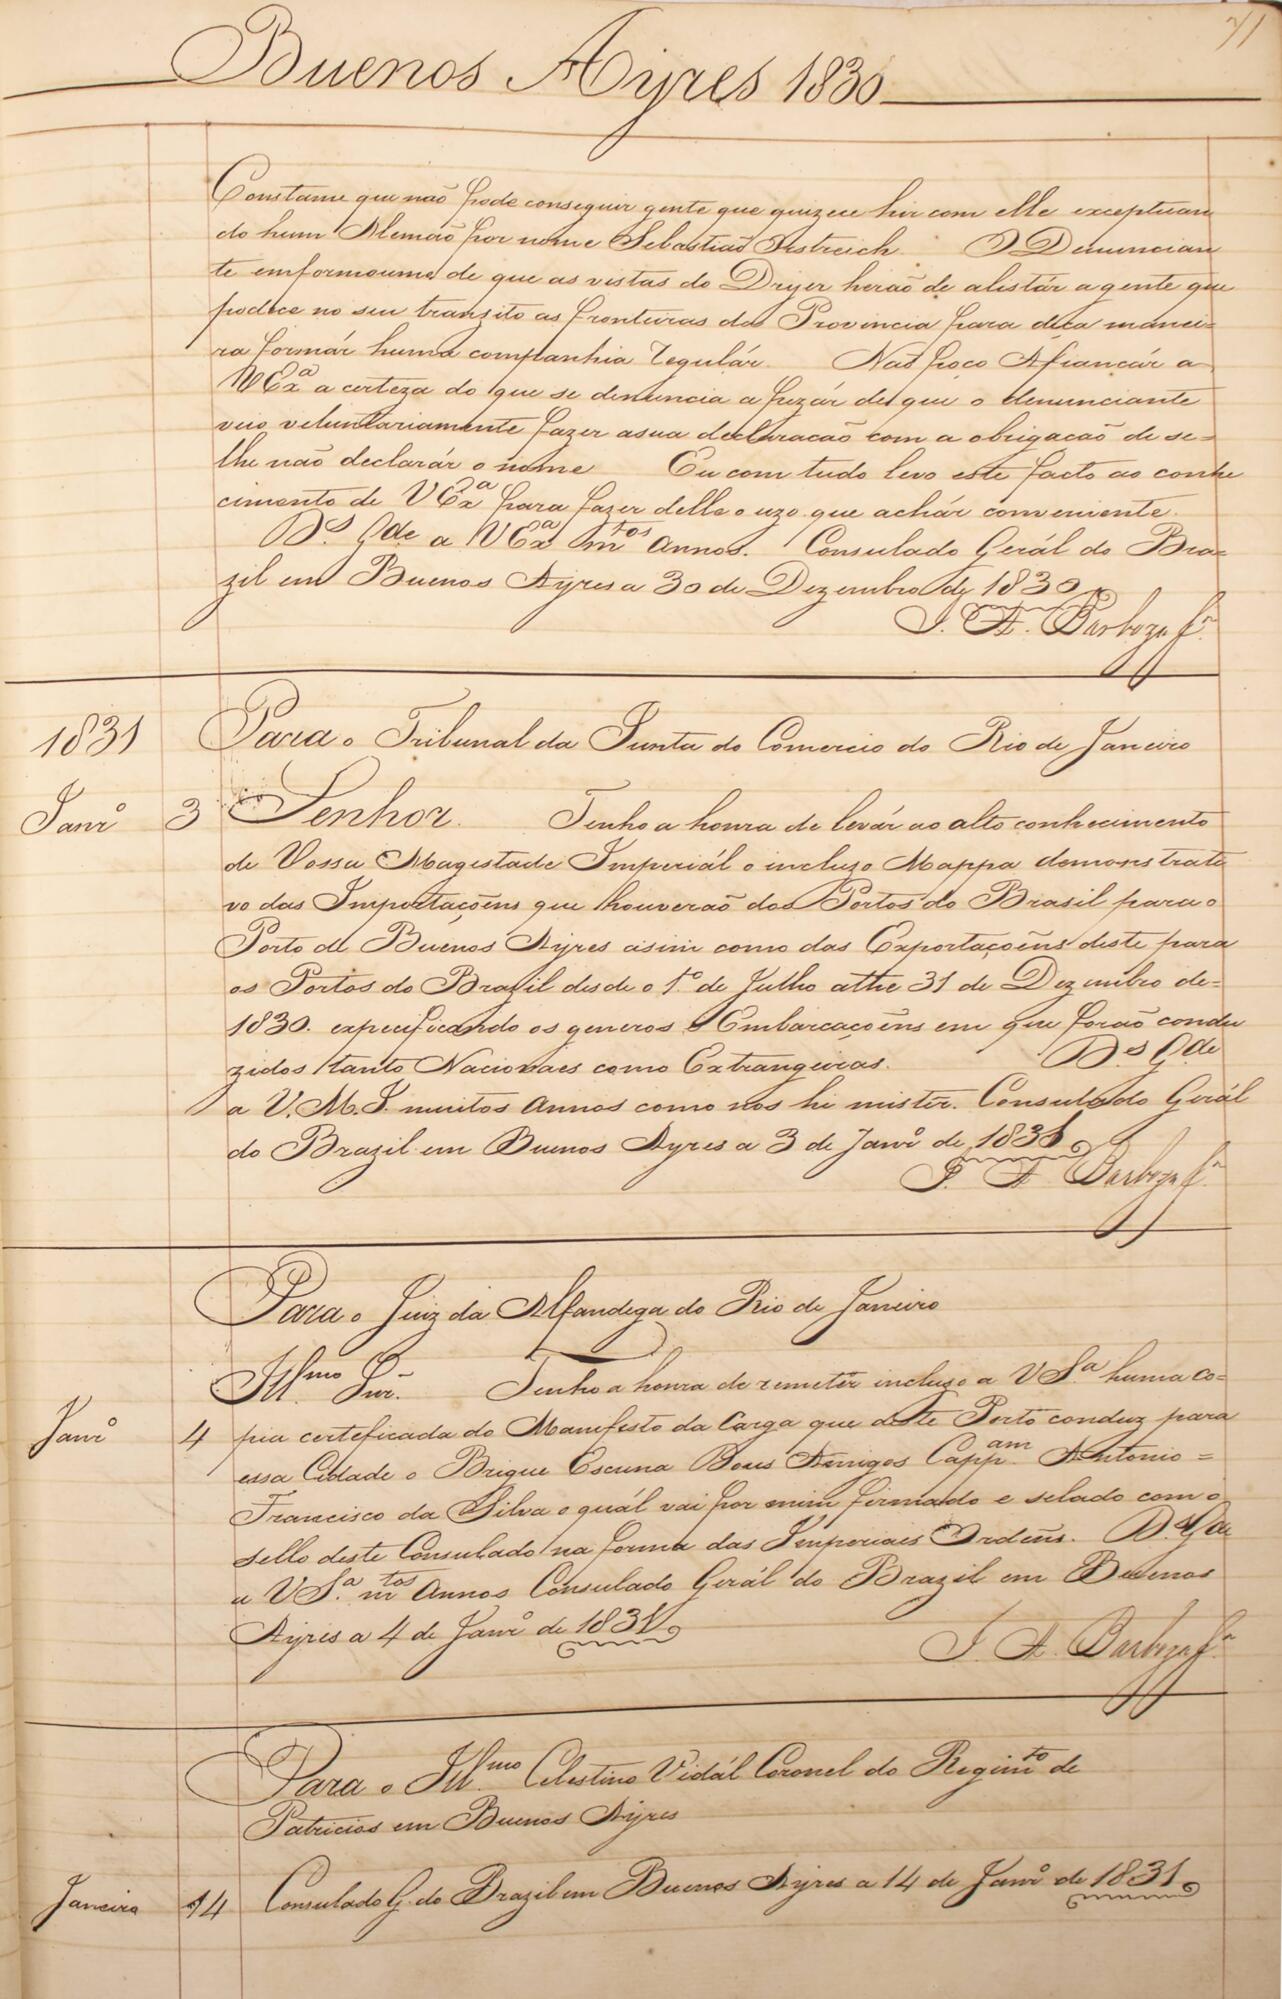 71
Buenos Ayres 1830
Constame que não pode conseguir gente que quizece hir com elle exceptuan
do hum Alemão por nome Sebastião O Denuncian
te emformoume de que as vistas do Dryer herão de alistár a gente que
podece no seu tranzito as fronteiras da Provincia para deca manei=
ra formár huma companhia regulár. Nao poço Afiancár a
VExª a certeza do que se denuncia a pezár de que o denunciante
veio veluntariamente fazer a sua declaracaõ com a obrigacaõ de se=
lhe não declarár o nome Eu com tudo levo este facto ao conhe
cimento de VExª para fazer delle o uzo que achár conveniente.
Ds. Gde a VExª mtos annos. Consulado Gerál do Bra=
zil em Buenos Ayres a 30 de Dezembro de 1830
J. A. Barboza fº
1831
Para o Tribunal da Junta do Comercio do Rio de Janeiro
Janrº 3 Senhor. Tenho a honra de levár ao alto conhecimento
de Vossa Magestade Imperiál o incluzo Mappa demonstrati
vo das Importaçoẽns que houverão dos Portos do Brasil para o
Porto de Buenos Ayres asim como das Exportaçoẽns deste para
os Portos do Brazil desde o 1º de Julho athe 31 de Dezembro de=
1830. expecificando os generos e Embarcaçoẽns em que forão condu
zidos tanto Nacionaes como Extrangeiras. Ds Gde
a V. M. I. muitos annos como nos he mister. Consulado Gerál
do Brazil em Buenos Ayres a 3 de Janrº de 1831
J. A Barboza fº
Para o Juiz da Alfandega do Rio de Janeiro
Illmo Snr. Tenho a honra de remetêr incluzo a VSª huma co=
Janrº 4 pia certeficada do Manifesto da Carga que deste Porto conduz para
essa Cidade o Brigue Escuna Bons Amigos Cappam Antonio=
Francisco da Silva o quál vai por mim firmado e selado com o
sello deste Consulado na forma das Imperiaes Ordeñs. Ds Gde
a VSª mtos annos Consulado Gerál do Brazil em Buenos
Ayres a 4 de Janrº de 1831
J. A. Barboza fº
Para o Illmo Celestino Vidál Coronel do Regimto de
Patricios em Buenos Ayres
Janeiro 14 Consulado G. do Brazil em Buenos Ayres a 14 de Janrº de 1831